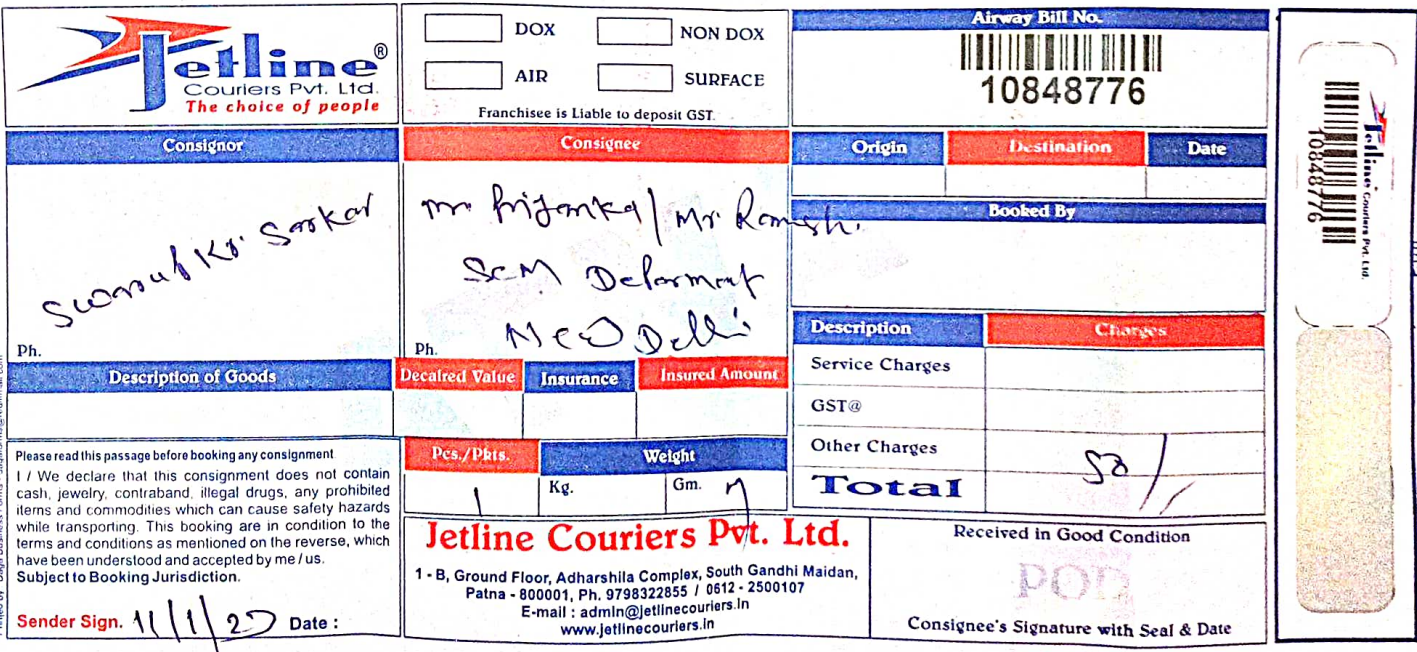 Jetline®
Couriers Pvt. Ltd.
The choice of people
DOX
NON DOX
AIR
SURFACE
Franchisee is Liable to deposit GST.
Airway Bill No.
10848776
Consignor
Swarup Kr. Sarkar
Ph.
Consignee
Mr Ramesh.
New Delhi
Ph.
Origin
Destination
Date
Booked By
Description of Goods
Decalred Value
Insurance
Insured Amount
Description
Charges
Service Charges
GST@
Other Charges
Total
50/
Please read this passage before booking any consignment
I / We declare that this consignment does not contain
cash, jewelry, contraband, illegal drugs, any prohibited
items and commodities which can cause safety hazards
while transporting. This booking are in condition to the
terms and conditions as mentioned on the reverse, which
have been understood and accepted by me / us.
Subject to Booking Jurisdiction.
Sender Sign. 11/1/2 Date :
Pcs./Pkts.
1
Weight
Kg.
Gm.
Jetline Couriers Pvt. Ltd.
1 - B, Ground Floor, Adharshila Complex, South Gandhi Maidan,
Patna - 800001, Ph. 9798322855 / 0612 - 2500107
E-mail : admin@jetlinecouriers.in
www.jetlinecouriers.in
Received in Good Condition
POD
Consignee's Signature with Seal & Date
Jetline Couriers Pvt. Ltd.
10848776